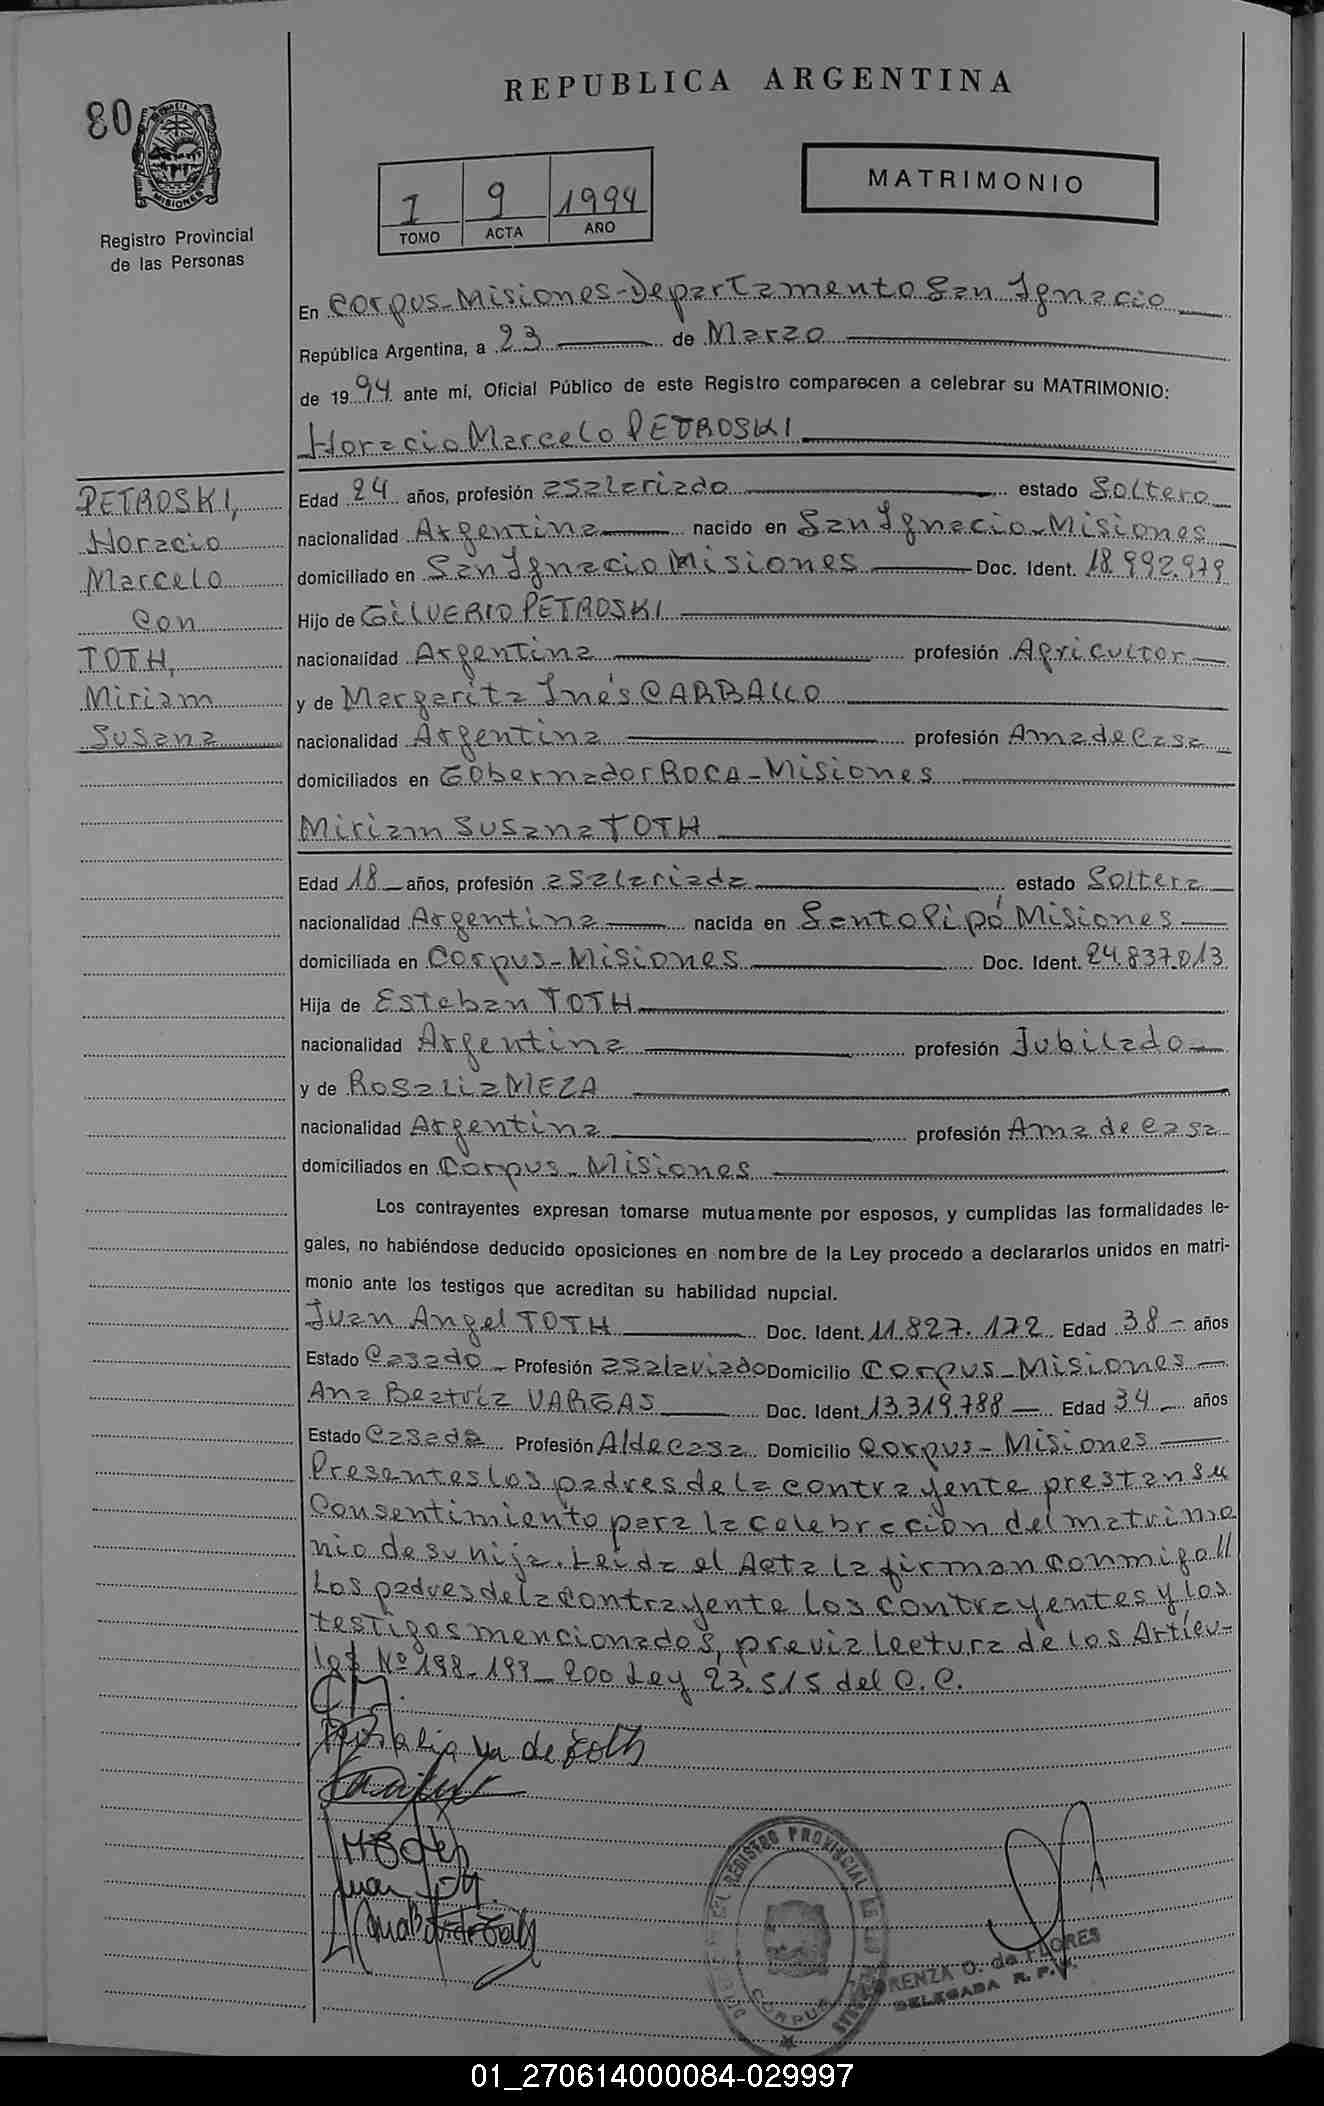 REPUBLICA ARGENTINA
80
MISIONES
Registro Provincial
de las Personas
MATRIMONIO
1 9 1994
TOMO ACTA AÑO
En Corpus-Misiones-Departamento San Ignacio
República Argentina, a 23 de Marzo
de 1994 ante mí, Oficial Público de este Registro comparecen a celebrar su MATRIMONIO:
Horacio Marcelo PETROSKI
PETROSKI,
Horacio
Marcelo
con
TOTH,
Miriam
Susana
Edad 24 años, profesión asalariado estado Soltero
nacionalidad Argentina nacido en San Ignacio-Misiones
domiciliado en San Ignacio Misiones Doc. Ident. 18.992.979
Hijo de GILVERIO PETROSKI
nacionalidad Argentina profesión Agricultor
y de Margarita Inés CARBALLO
nacionalidad Argentina profesión Ama de Casa
domiciliados en Gobernador ROCA-Misiones
Miriam Susana TOTH
Edad 18 años, profesión asalariada estado Soltera
nacionalidad Argentina nacida en Santo Pipó Misiones
domiciliada en Corpus-Misiones Doc. Ident. 24.837.013
Hija de Esteban TOTH
nacionalidad Argentina profesión Jubilado
y de Rosalia MEZA
nacionalidad Argentina profesión Ama de Casa
domiciliados en Corpus-Misiones
Los contrayentes expresan tomarse mutuamente por esposos, y cumplidas las formalidades le-
gales, no habiéndose deducido oposiciones en nombre de la Ley procedo a declararlos unidos en matri-
monio ante los testigos que acreditan su habilidad nupcial.
Juan Angel TOTH Doc. Ident. 11.827.172 Edad 38 - años
Estado Casado Profesión asalariado Domicilio Corpus-Misiones
Ana Beatríz VARGAS Doc. Ident. 13.319.788 Edad 34 años
Estado Casada Profesión A/de Casa Domicilio Corpus-Misiones
Presentes los padres de la contrayente prestan su
Consentimiento para la celebración del matrimo
nio de su hija. Leida el Acta la firman conmigo //
Los padres de la contrayente los contrayentes y los
testigos mencionados, previa Lectura de los Articu-
los Nº 198-199-200 Ley 23.515 del C.C.
Rosalia de Toth
Juan
REGISTRO PROVINCIAL DE LAS
CORPUS
LORENZA O. de FLORES
DELEGADA R. P. P.
01_270614000084-029997